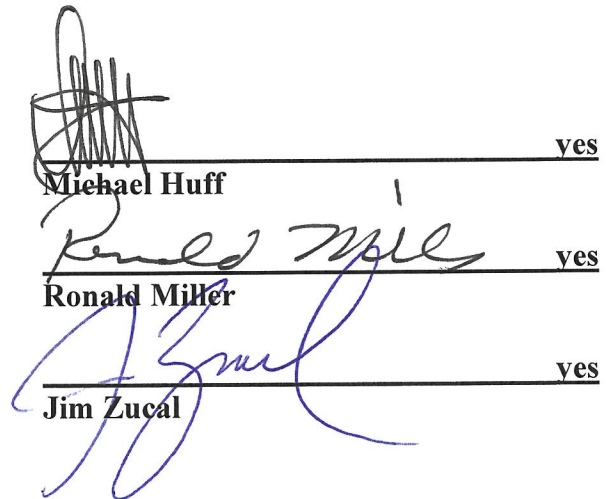 yes
Michael Huff
Ronald Miller yes
Ronald Miller
yes
Jim Zucal